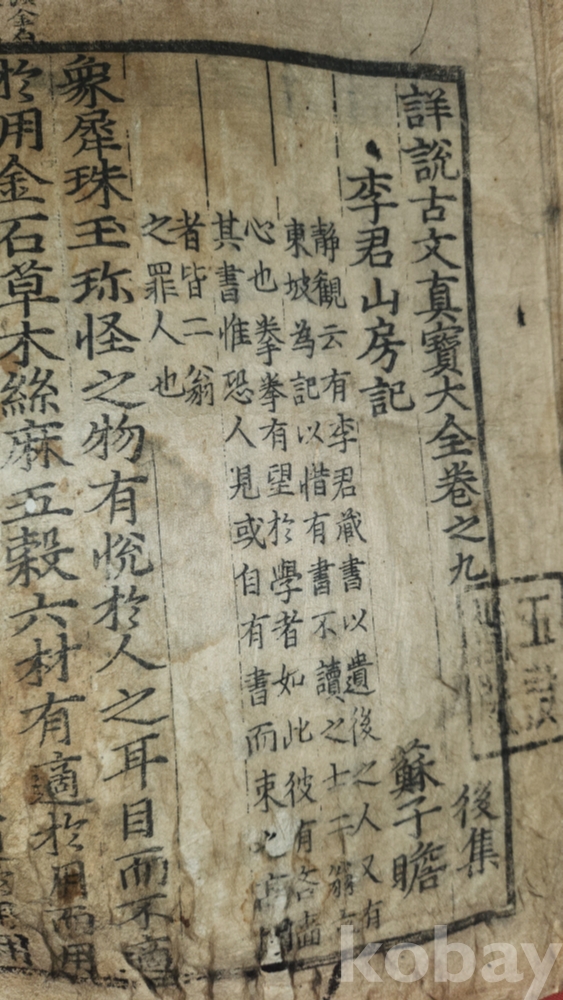 詳說古文真寶大全卷之九 後集
李君山房記 蘇子瞻
靜觀云有李君蔵書以遺後之人又有
東坡為記以惜有書不讀之士
心也拳拳有望於學者如此彼有
其書惟恐人見或自有書而束之高閣
者皆二翁
之罪人也
象犀珠玉珎怪之物有悅於人之耳目而不適
於用金石草木絲麻五榖六材有適於用而用
kobay